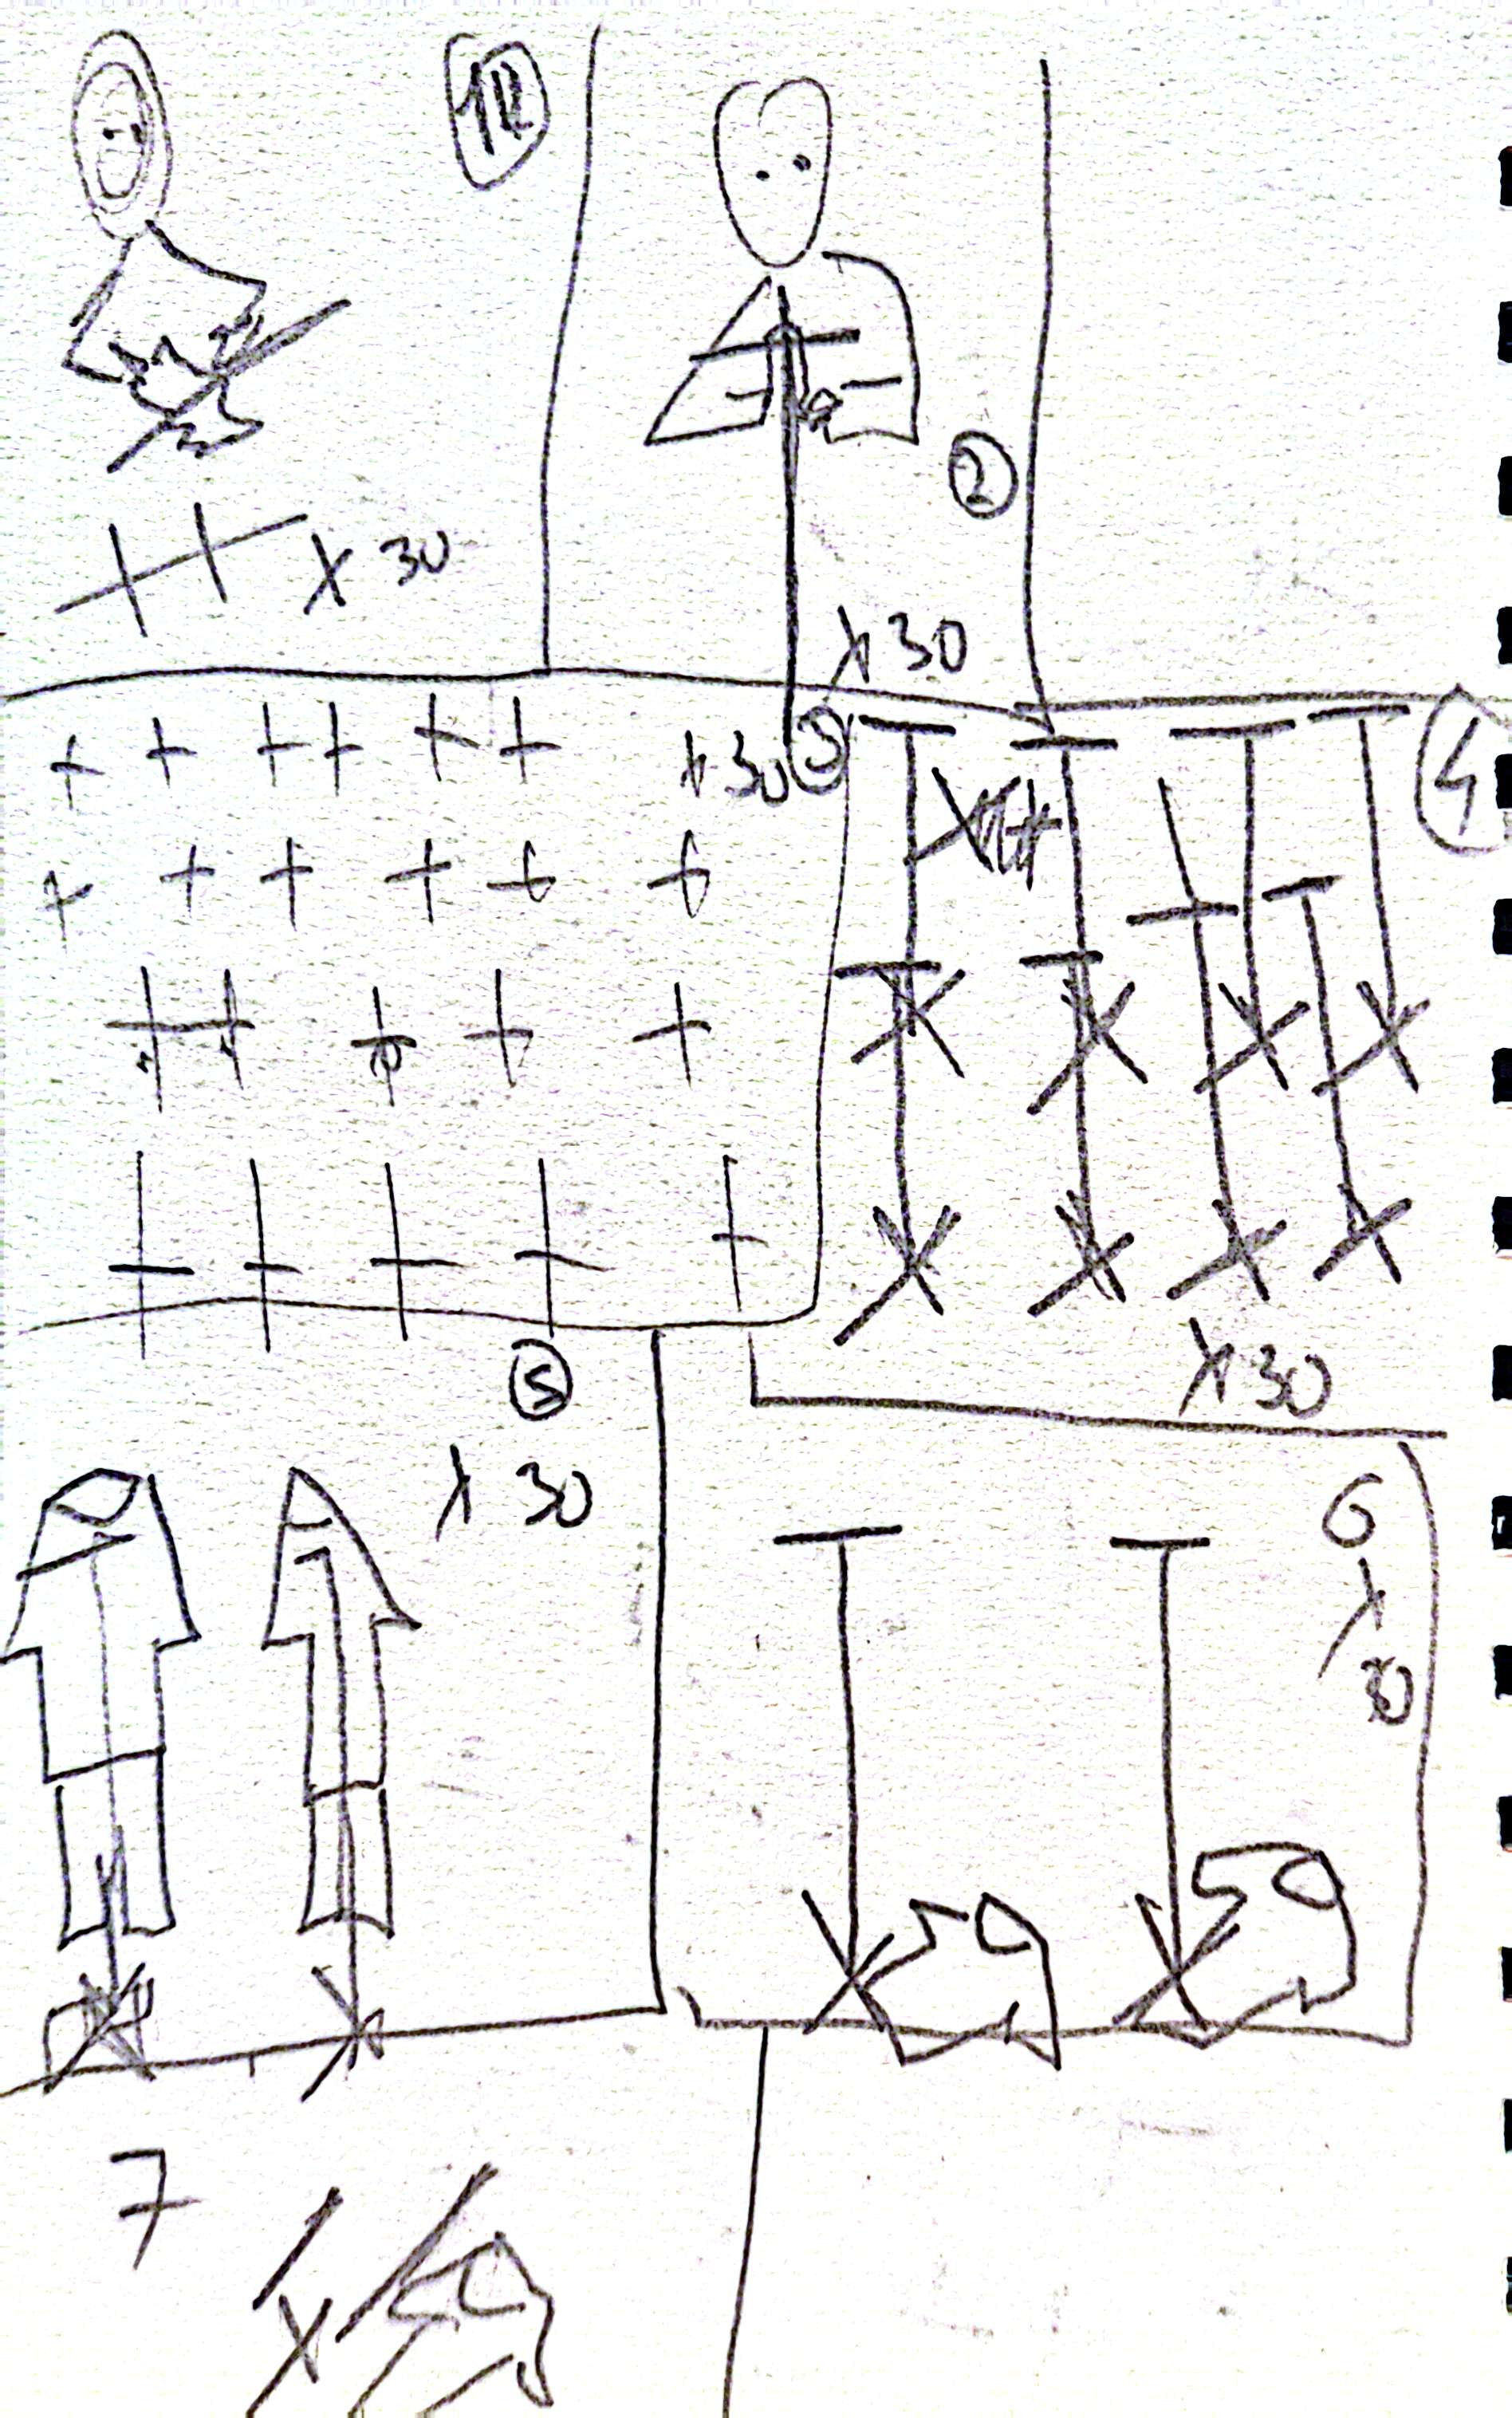 x 30
2
x 30
x 30
3
4
x 30
5
x 30
6
x
7